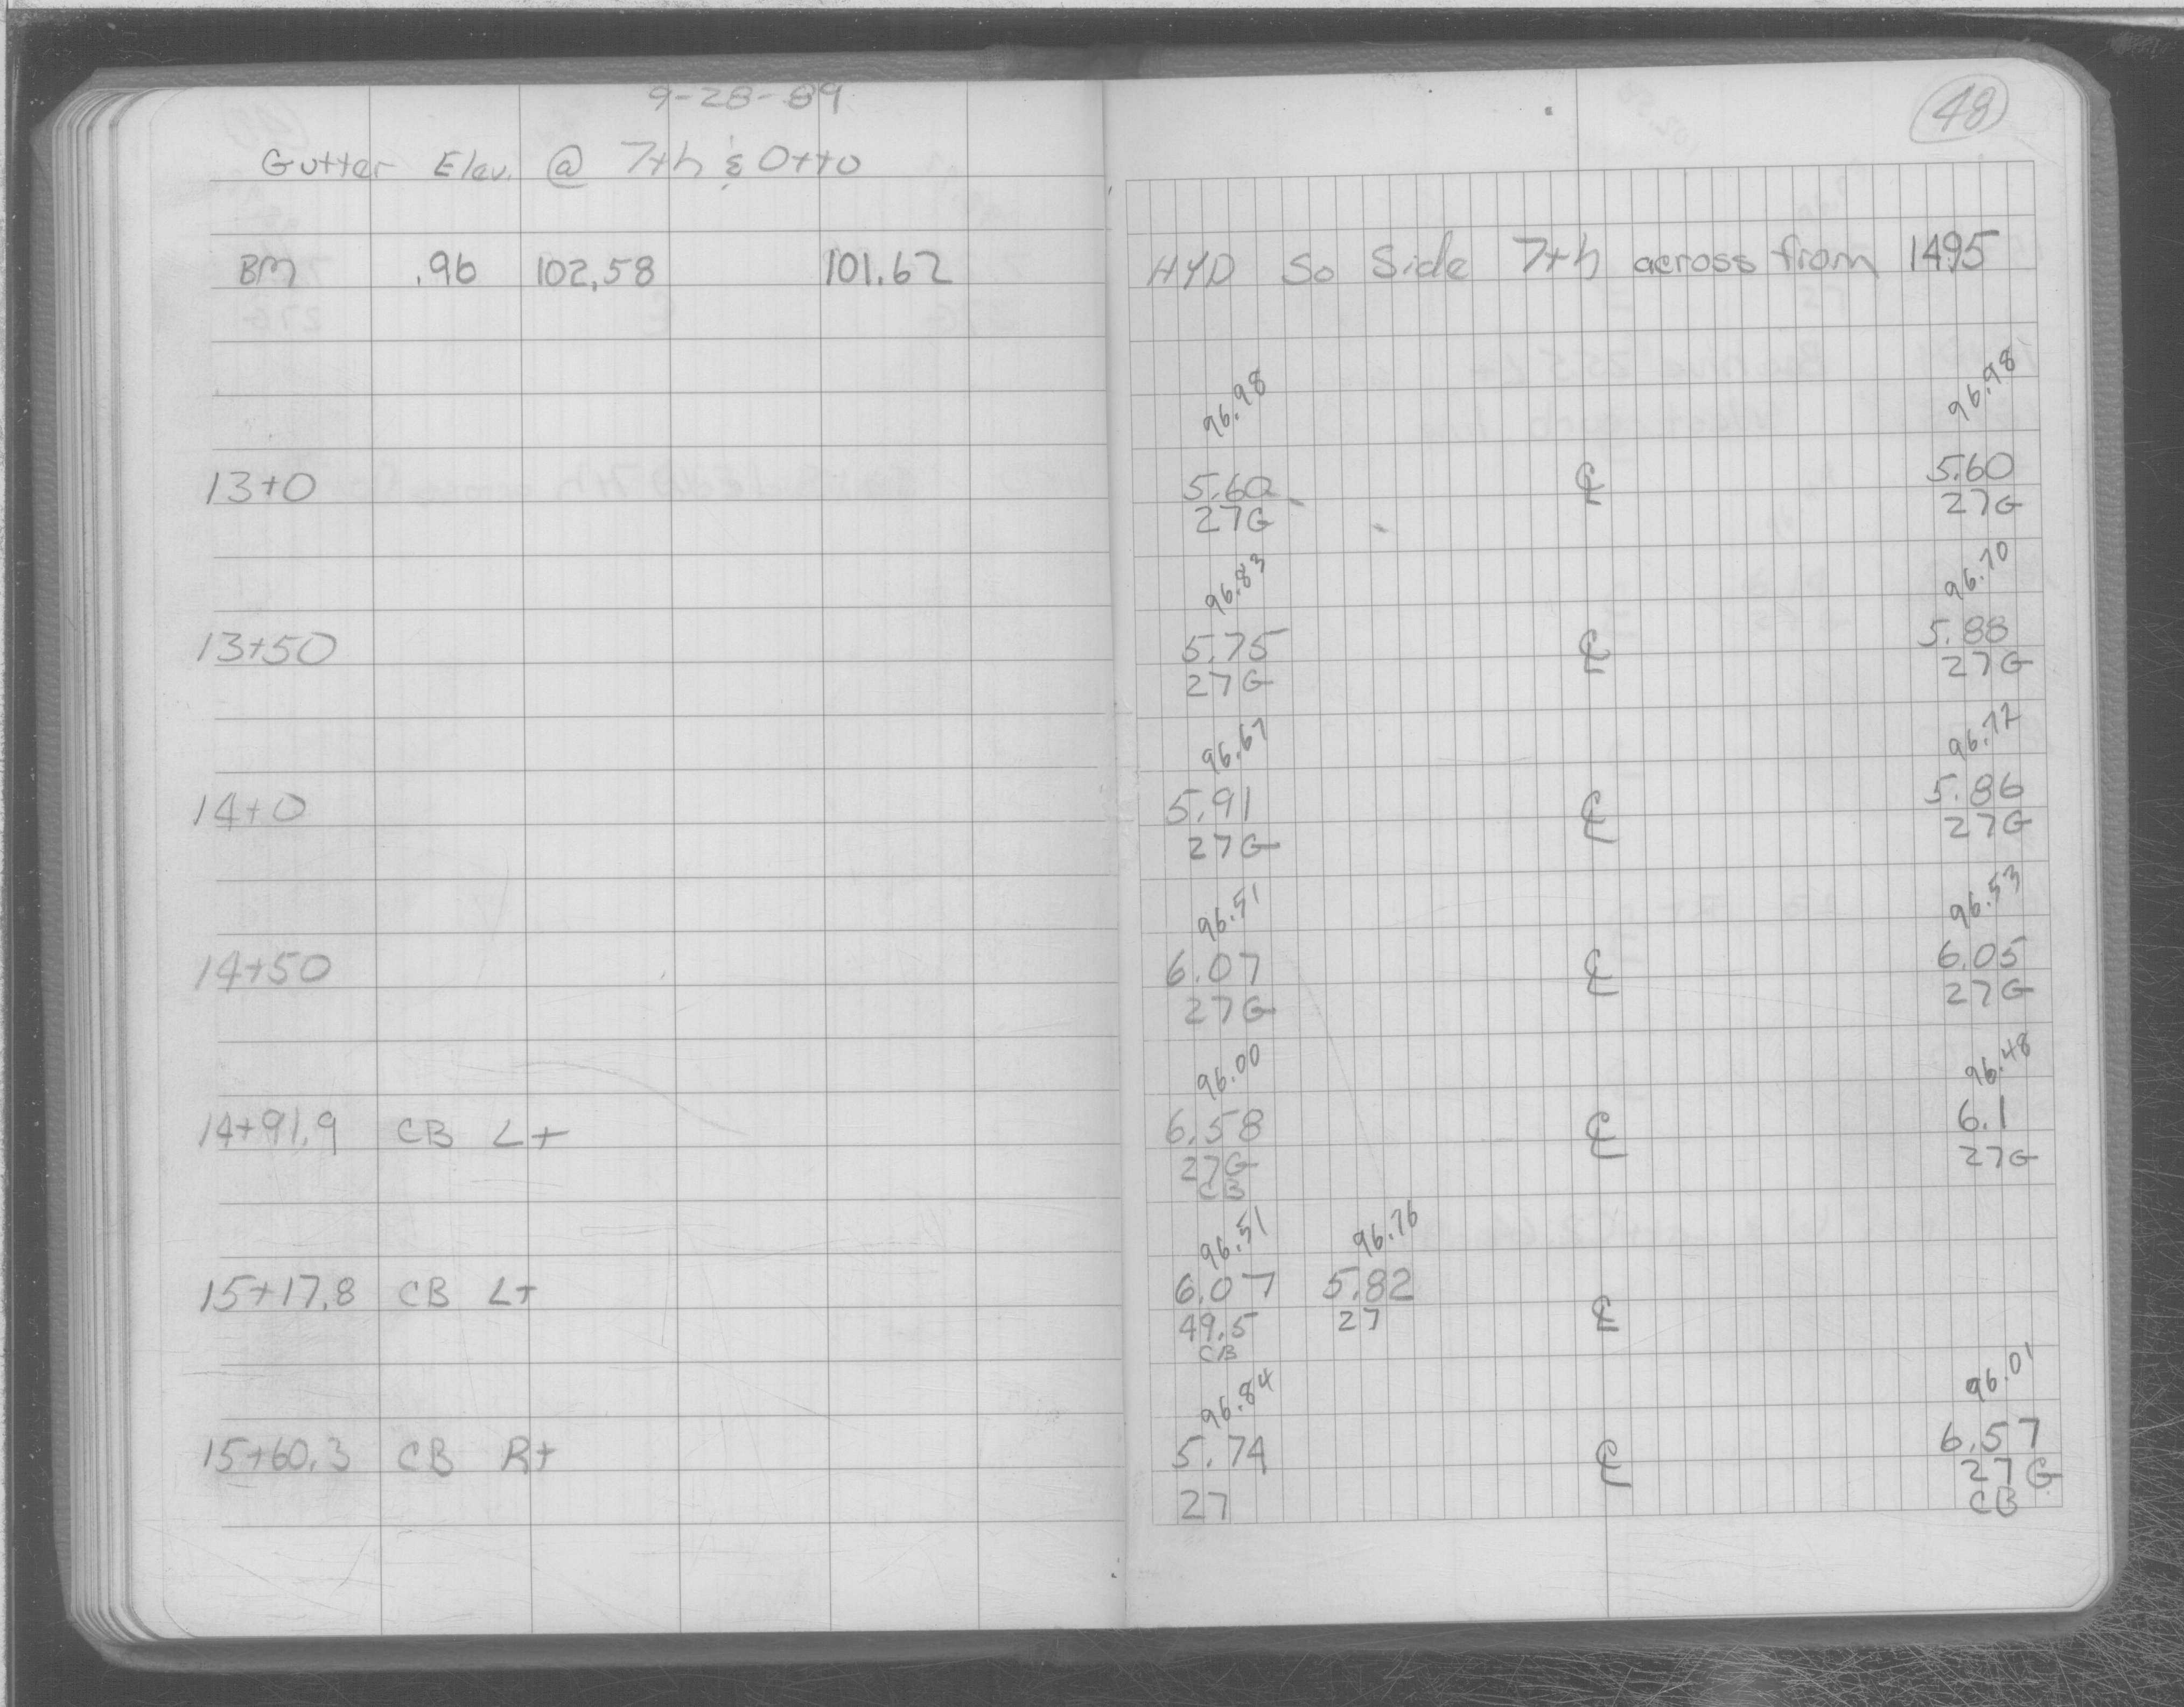 9-28-89
48
Gutter Elev. @ 7th & Otto
BM .96 102.58 101.62 HYD So Side 7th across from 1495
96.98 96.98
13+0 5.60 ℄ 5.60
27G 27G
96.83 96.70
13+50 5.75 ℄ 5.88
27G 27G
96.67 96.72
14+0 5.91 ℄ 5.86
27G 27G
96.51 96.53
14+50 6.07 ℄ 6.05
27G 27G
96.00 96.48
14+91.9 CB Lt 6.58 ℄ 6.1
27G 27G
CB
96.51 96.76
15+17.8 CB Lt 6.07 5.82 ℄
49.5 27
CB
96.84 96.01
15+60.3 CB Rt 5.74 ℄ 6.57
27 27G
CB